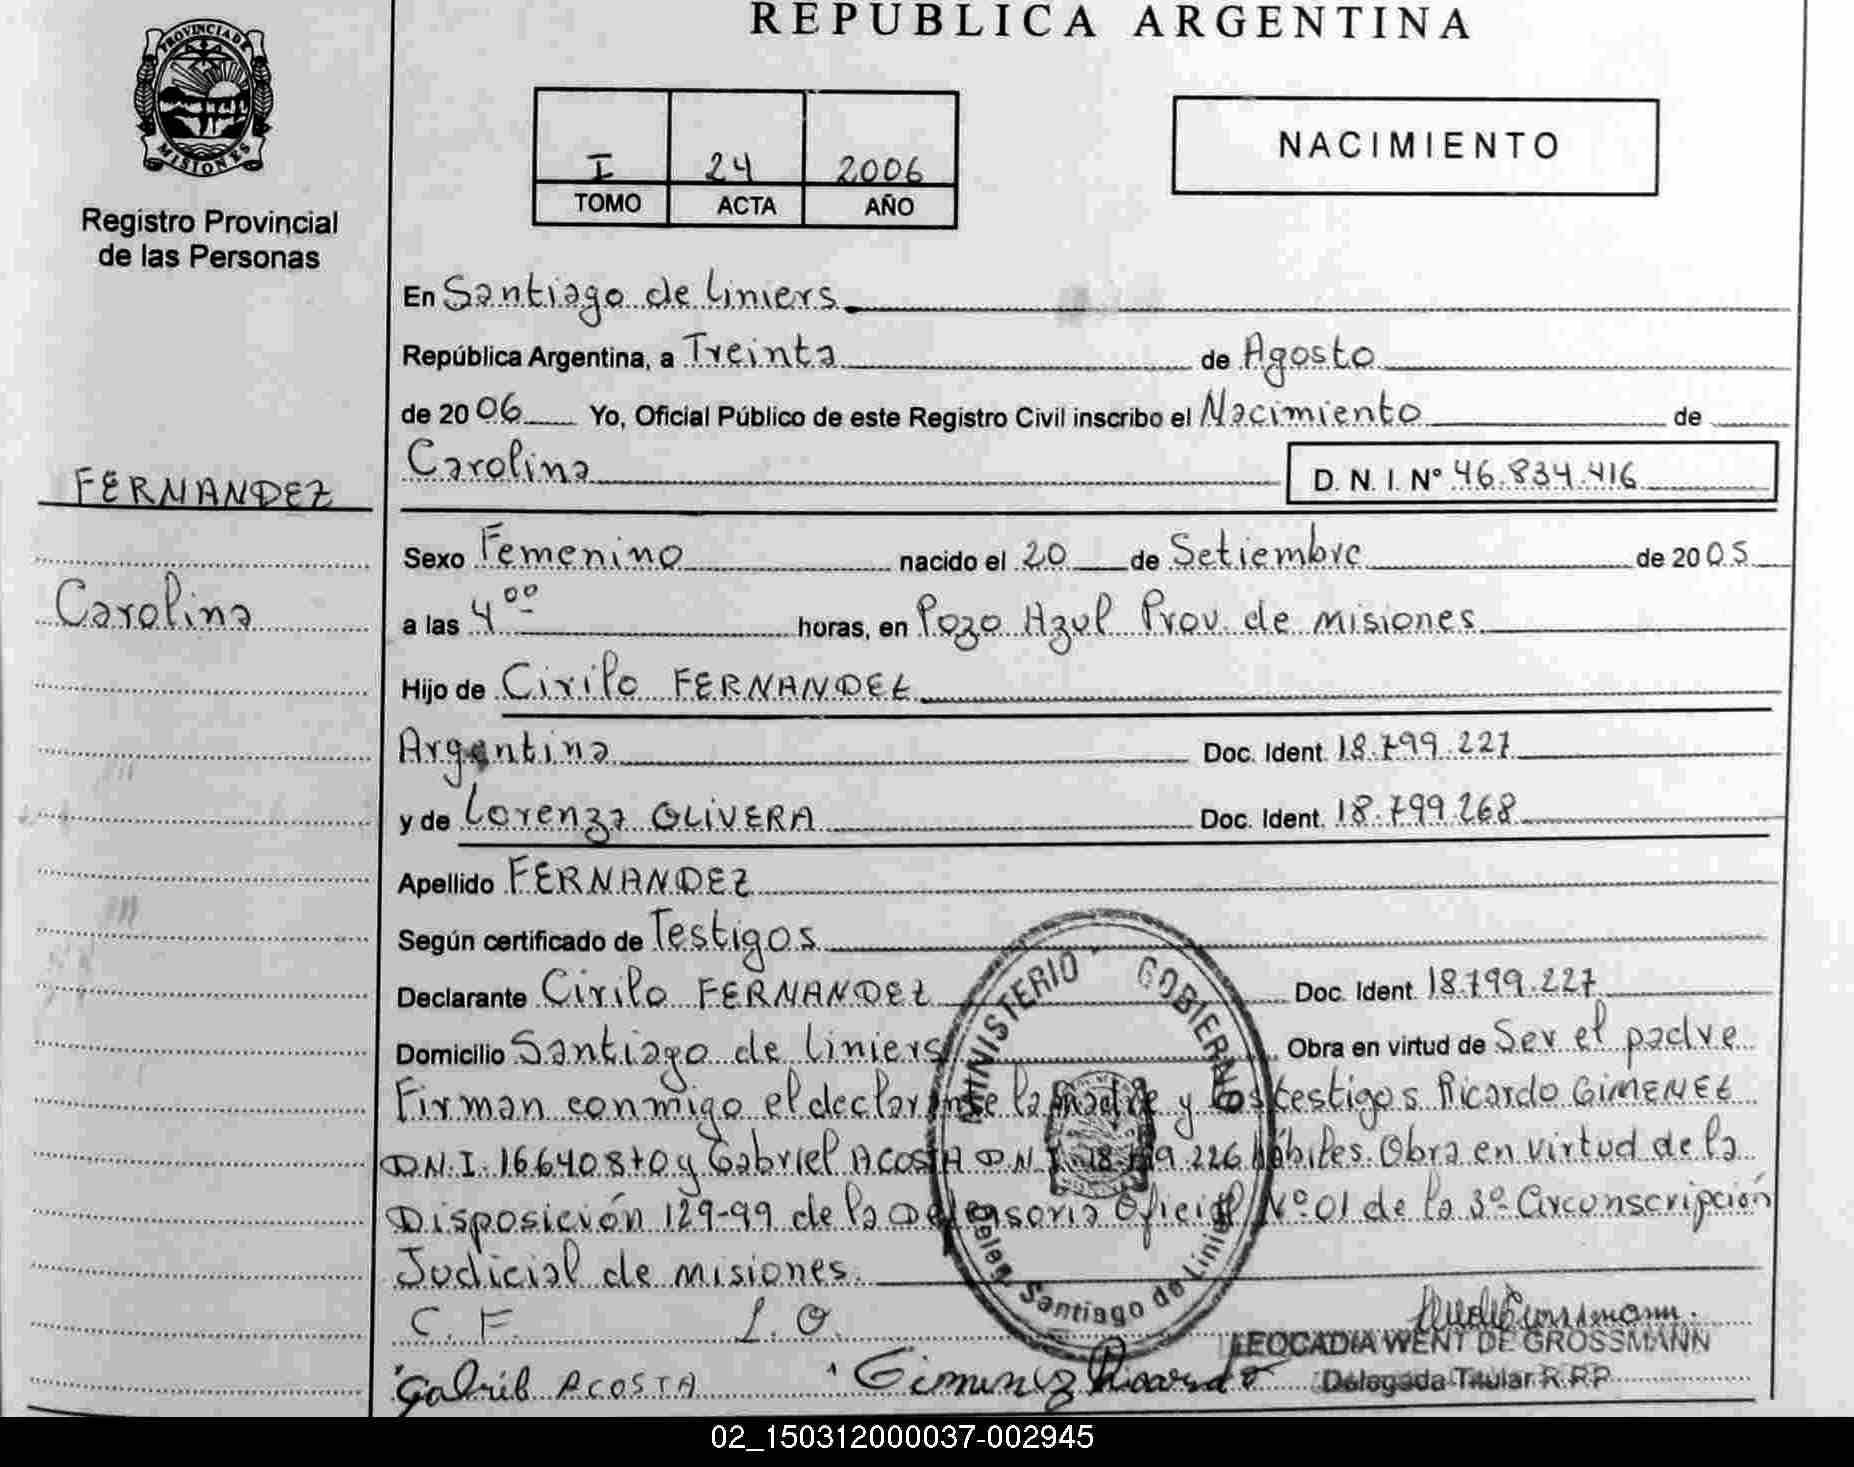 REPUBLICA ARGENTINA
PROVINCIA DE
MISIONES
Registro Provincial
de las Personas
I 24 2006
TOMO ACTA AÑO
NACIMIENTO
En Santiago de Liniers
República Argentina, a Treinta de Agosto
de 2006 Yo, Oficial Público de este Registro Civil inscribo el Nacimiento de
Carolina D. N. I. Nº 46.834.416
FERNANDEZ
Carolina
Sexo Femenino nacido el 20 de Setiembre de 2005
a las 4 00 horas, en Pozo Azul Prov. de Misiones
Hijo de Cirilo FERNANDEZ
Argentina Doc. Ident. 18.799.227
y de Lorenza OLIVERA Doc. Ident. 18.799.268
Apellido FERNANDEZ
Según certificado de Testigos
Declarante Cirilo FERNANDEZ Doc. Ident. 18.799.227
Domicilio Santiago de Liniers Obra en virtud de Ser el padre
Firman conmigo el declarante la madre y los testigos Ricardo GIMENEZ
D.N.I. 16640870 y Gabriel ACOSTA D.N.I. 226 hábiles. Obra en virtud de la
Disposición 129-99 de la Defensoria Oficial Nº 01 de la 3º Circonscripción
Judicial de Misiones.
MINISTERIO GOBIERNO
Deleg. Santiago de Liniers
C. F. L. O.
LEOCADIA WENT DE GROSSMANN
Delegada Titular R.P.P.
Gabriel ACOSTA Gimenez Ricardo
02_150312000037-002945